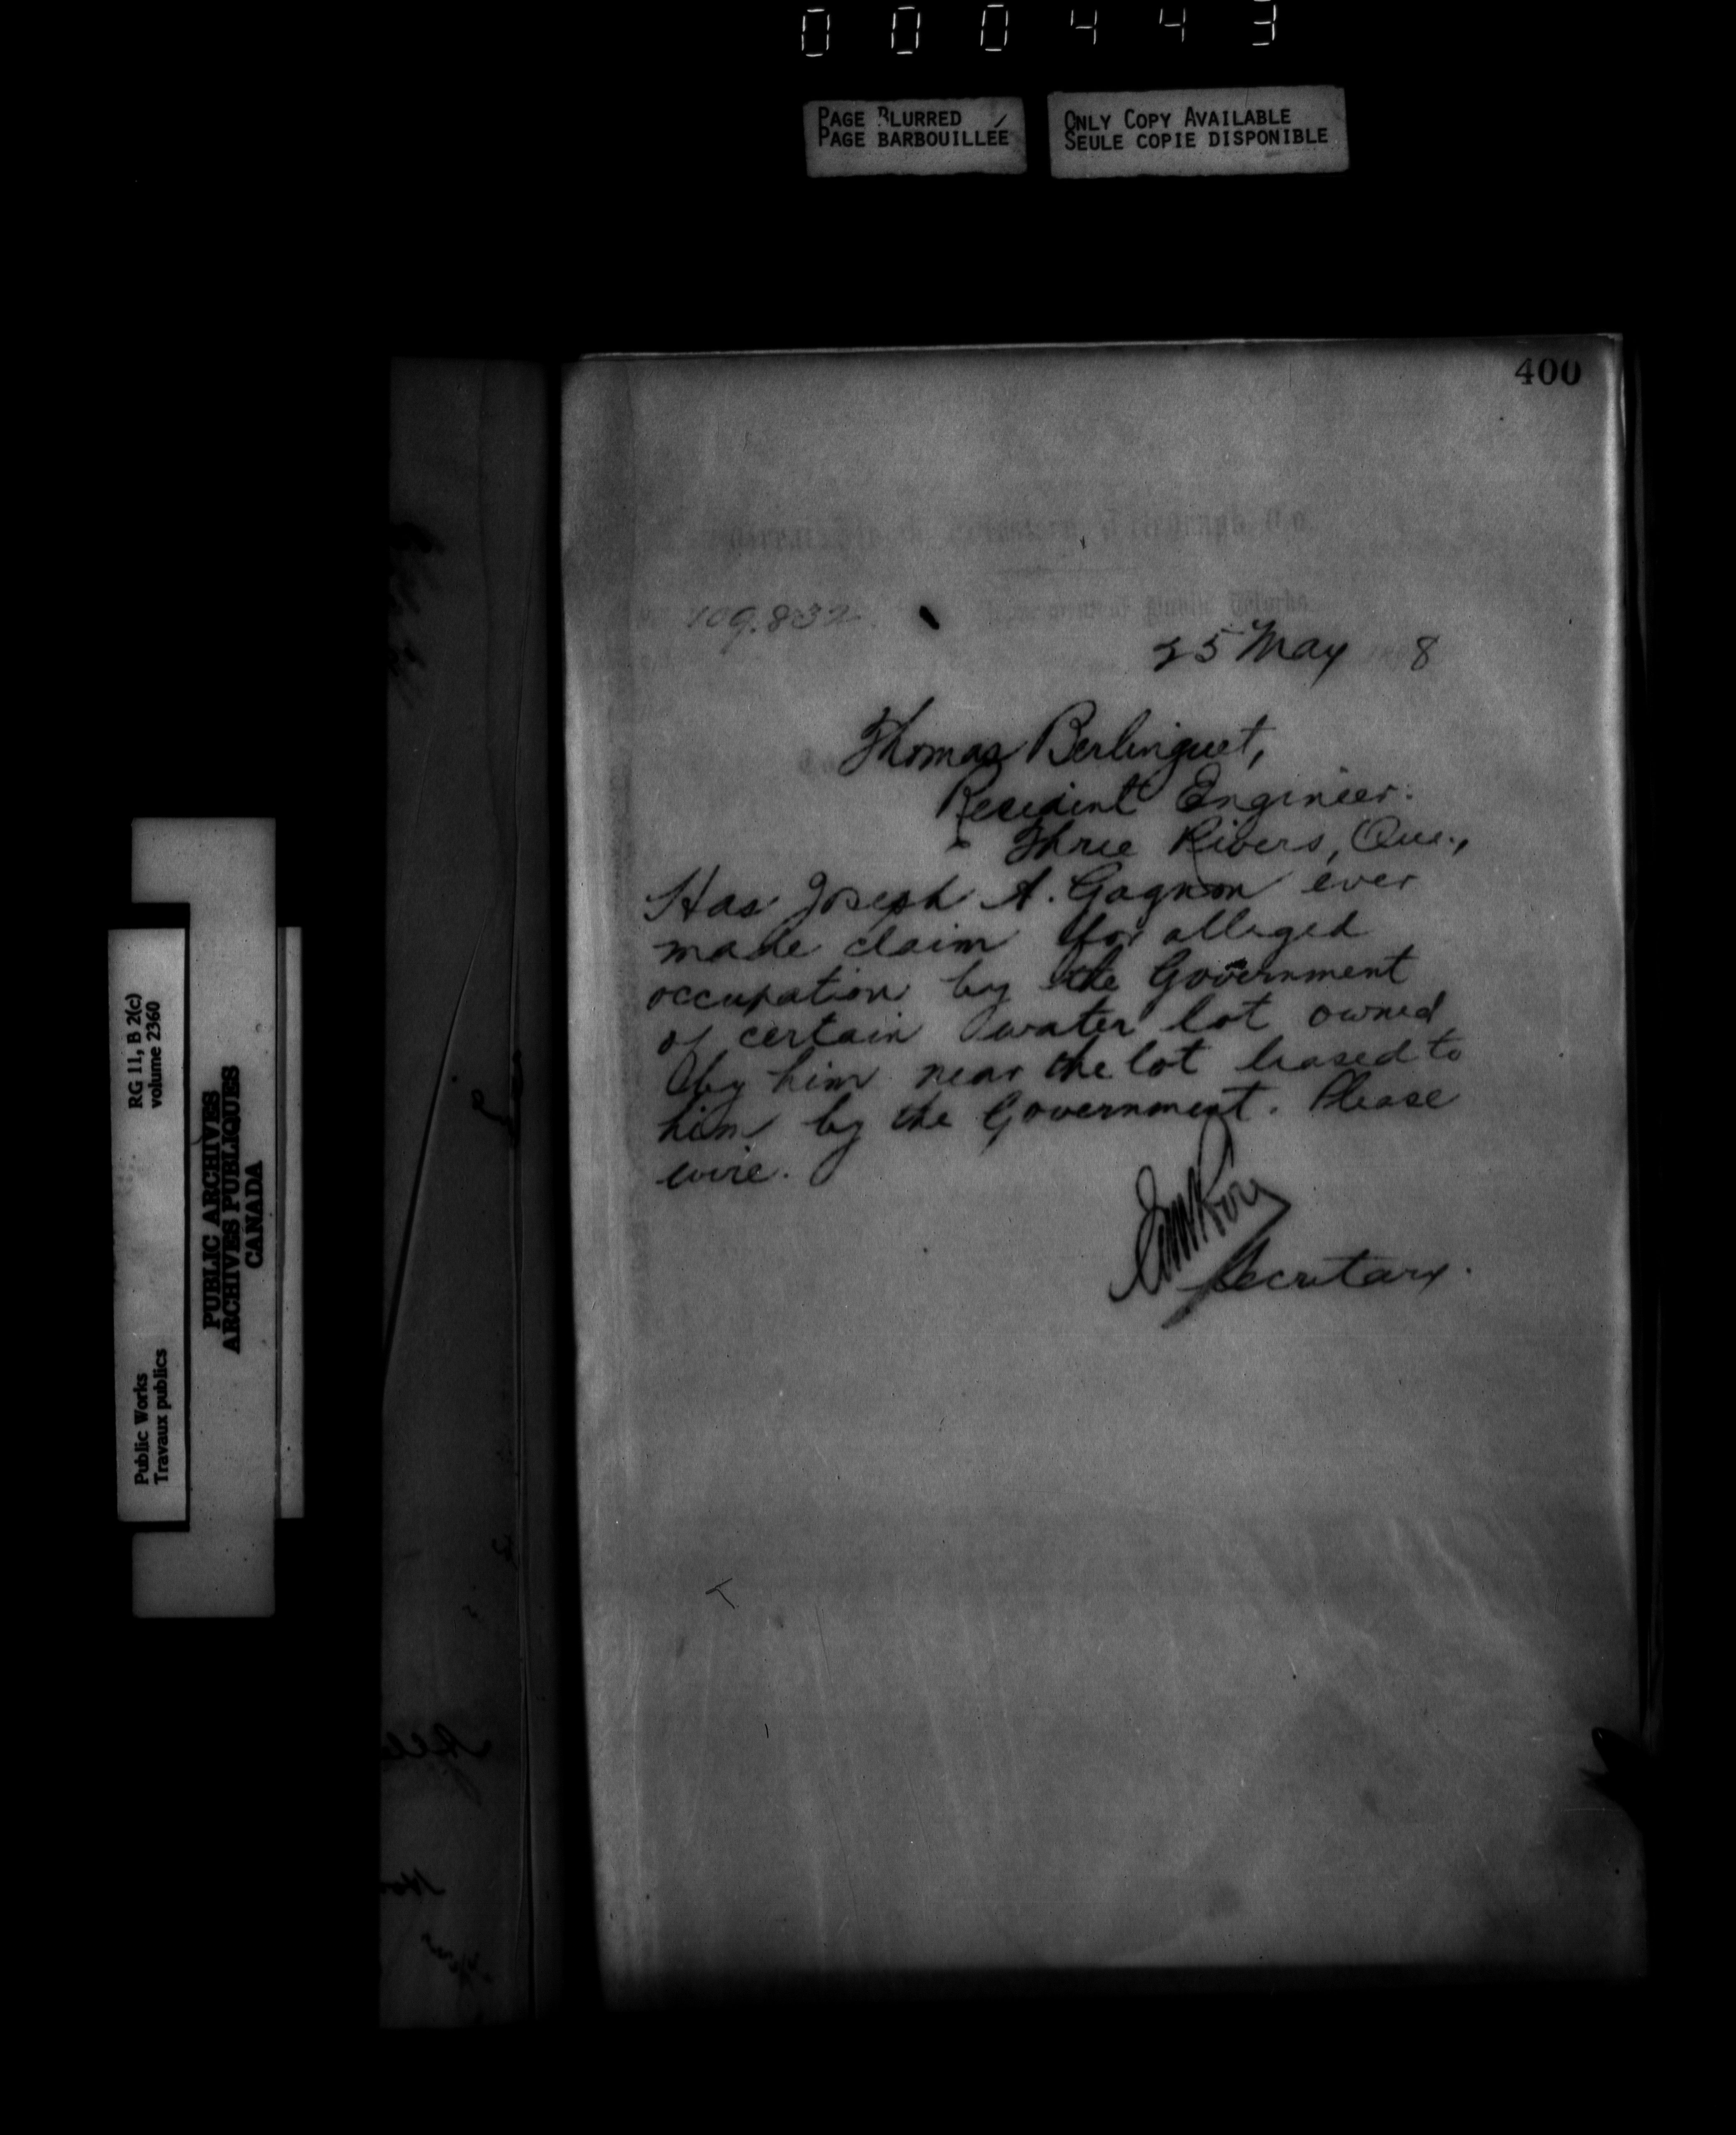 000443
PAGE BLURRED
PAGE BARBOUILLÉE
ONLY COPY AVAILABLE
SEULE COPIE DISPONIBLE
400
Great North Western Telegraph Co.
109.832
Department of Public Works
25 May 8
Thomas Berlinguet,
Resident Engineer.
Three Rivers, Que.,
Has Joseph A. Gagnon ever
made claim for alleged
occupation by the Government
of certain water lot owned
by him near the lot leased to
him by the Government. Please
wire.
Secretary.
RG 11, B 2(c)
volume 2360
Public Works
Travaux publics
PUBLIC ARCHIVES
ARCHIVES PUBLIQUES
CANADA